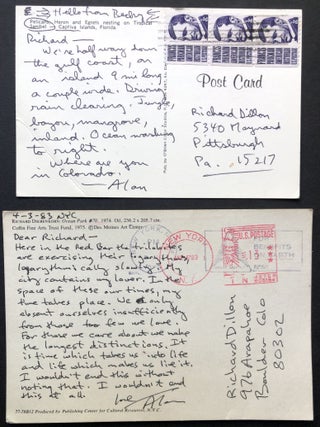 Hello from Becky
Pelicans, Heron and Egrets nesting on
Sanibel - Captiva Islands, Florida
Richard —
We're halfway down
the gulf coast, on
an island 9 miles long
a couple wide. Driving
rain clearing. Jungle,
bayou, mangrove,
inland. Ocean washing
to right.
Where are you
in Colorado.
— Alan
Post Card
Richard Dillon
5340 Maynard
Pittsburgh
Pa. 15217
4-3-83 NYC
RICHARD DIEBENKORN: Ocean Park #70, 1974. Oil, 236.2 x 205.7 cm.
Coffin Fine Arts Trust Fund, 1975. Des Moines Art Center
Dear Richard —
Here in the Red Bar the
are exercising their logarithms,
logarythmically slowly. My
city contains my lover. In the
space of these our times, my
time takes place. We daily
absent ourselves insufficiently
from those too few we love.
For those we care about we make
the largest distinctions. It
is time which takes us into life
and life which makes us live it.
I wouldn't end this without
noting that. I wouldn't end
this at all.
love, Alan
NEW YORK
N.Y.
U.S. POSTAGE
BENEFITS
EARTH
Richard Dillon
976 Arapahoe
Boulder Colo
80302
Produced by Publishing Center for Cultural Resources, N.Y.C.